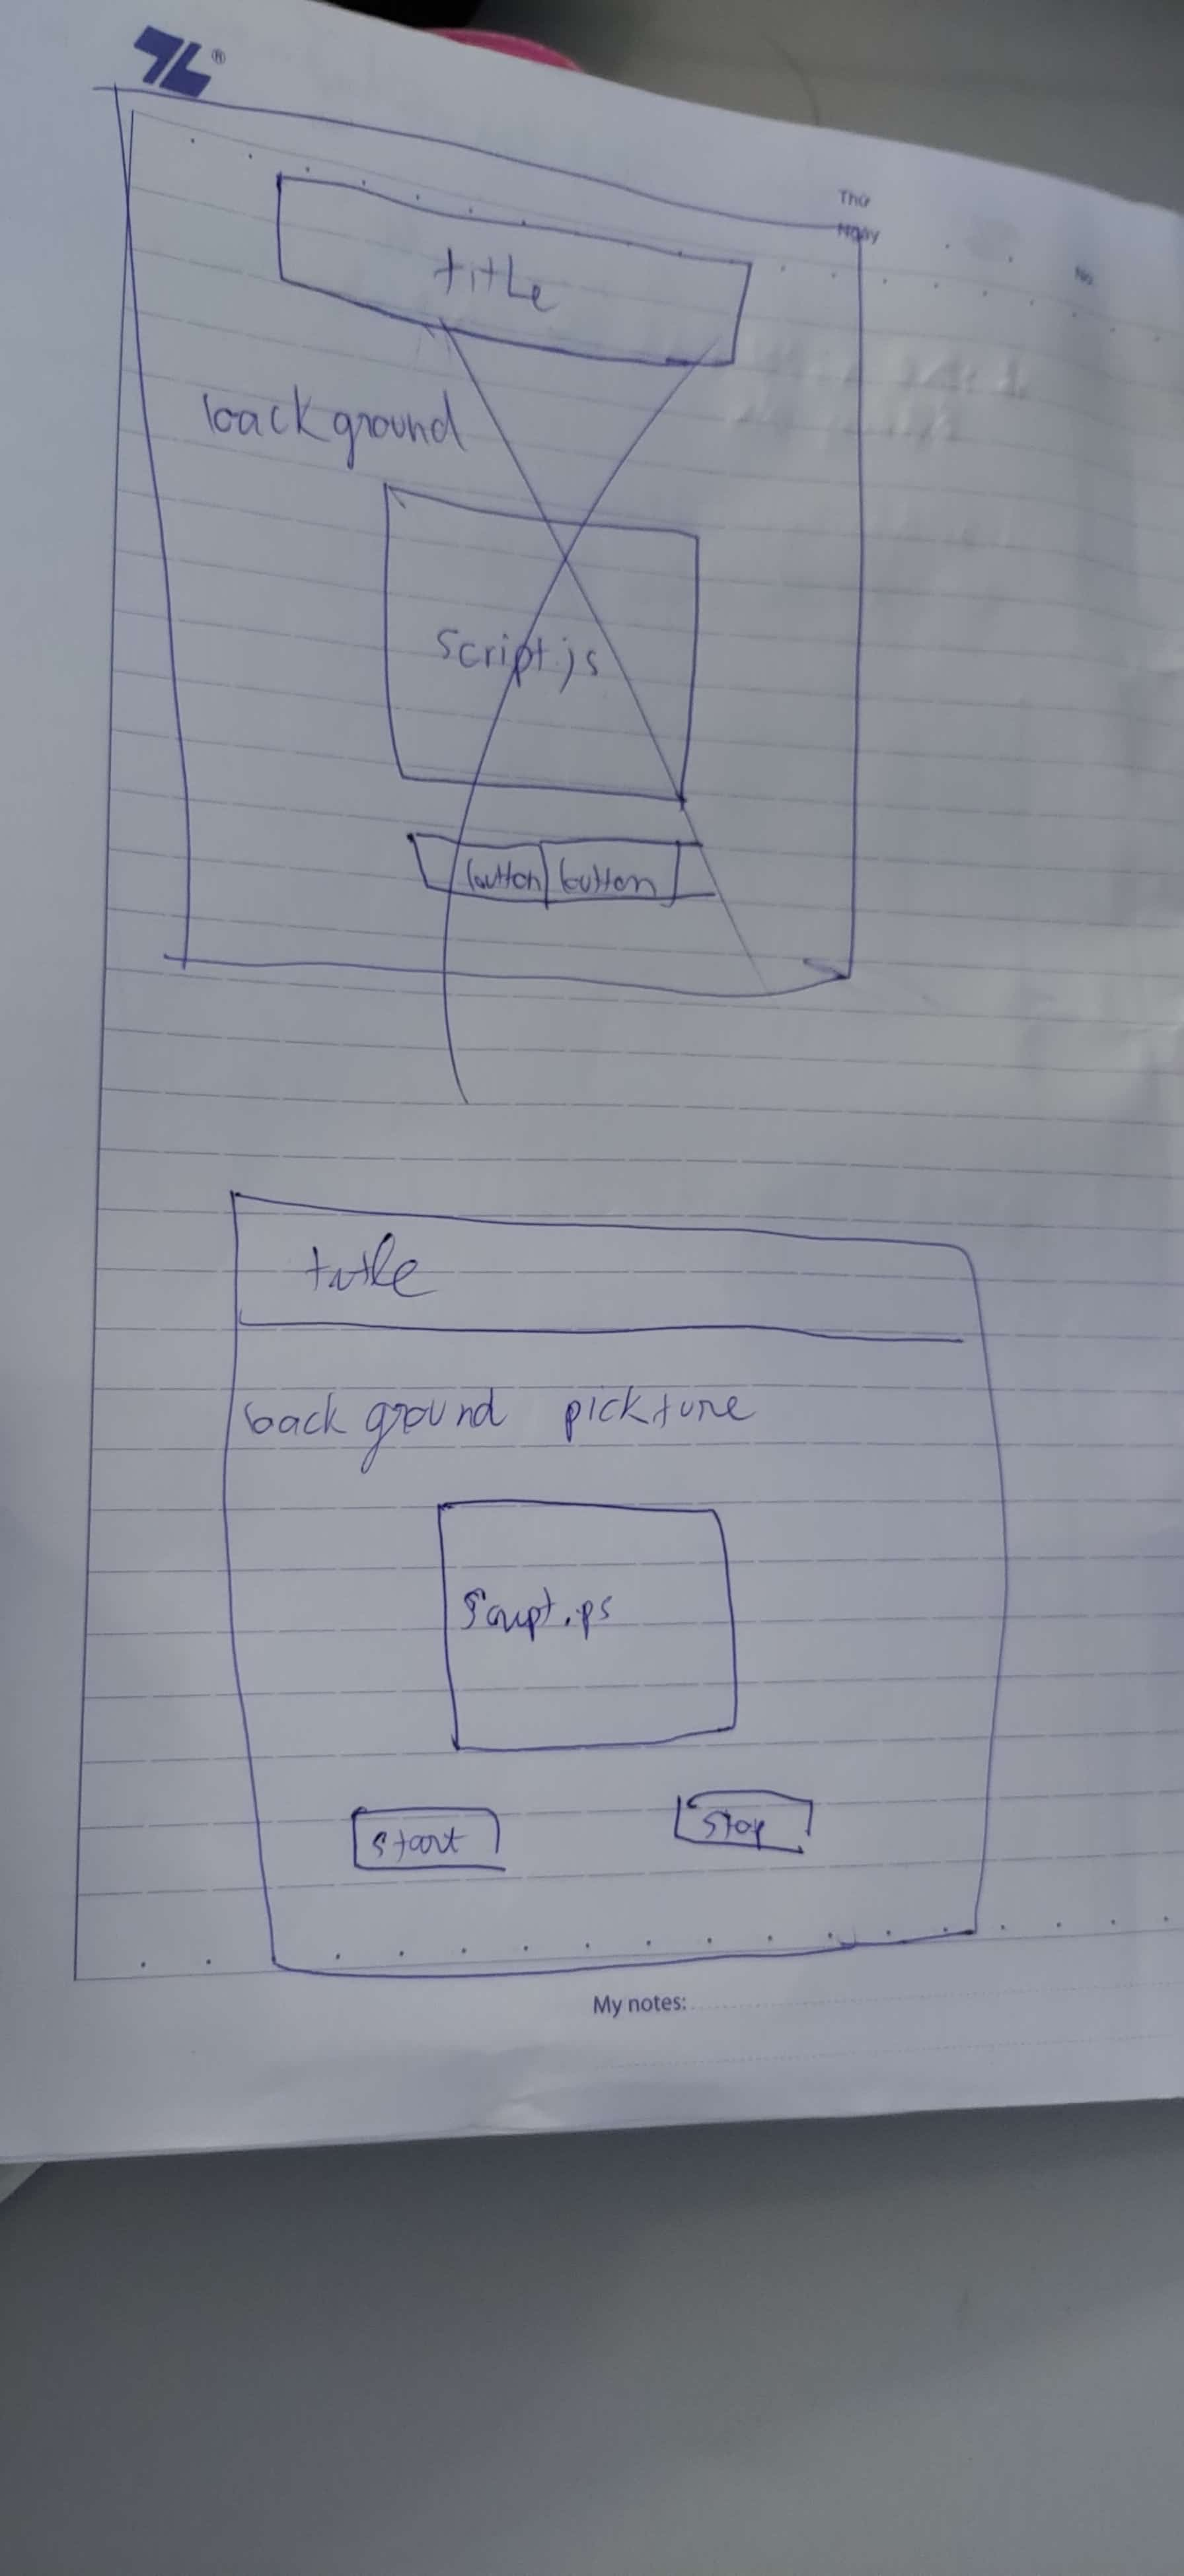 ®
Thứ
Ngày
No.
title
background
script.js
button button
title
back ground pickture
Script.js
start stop
My notes: